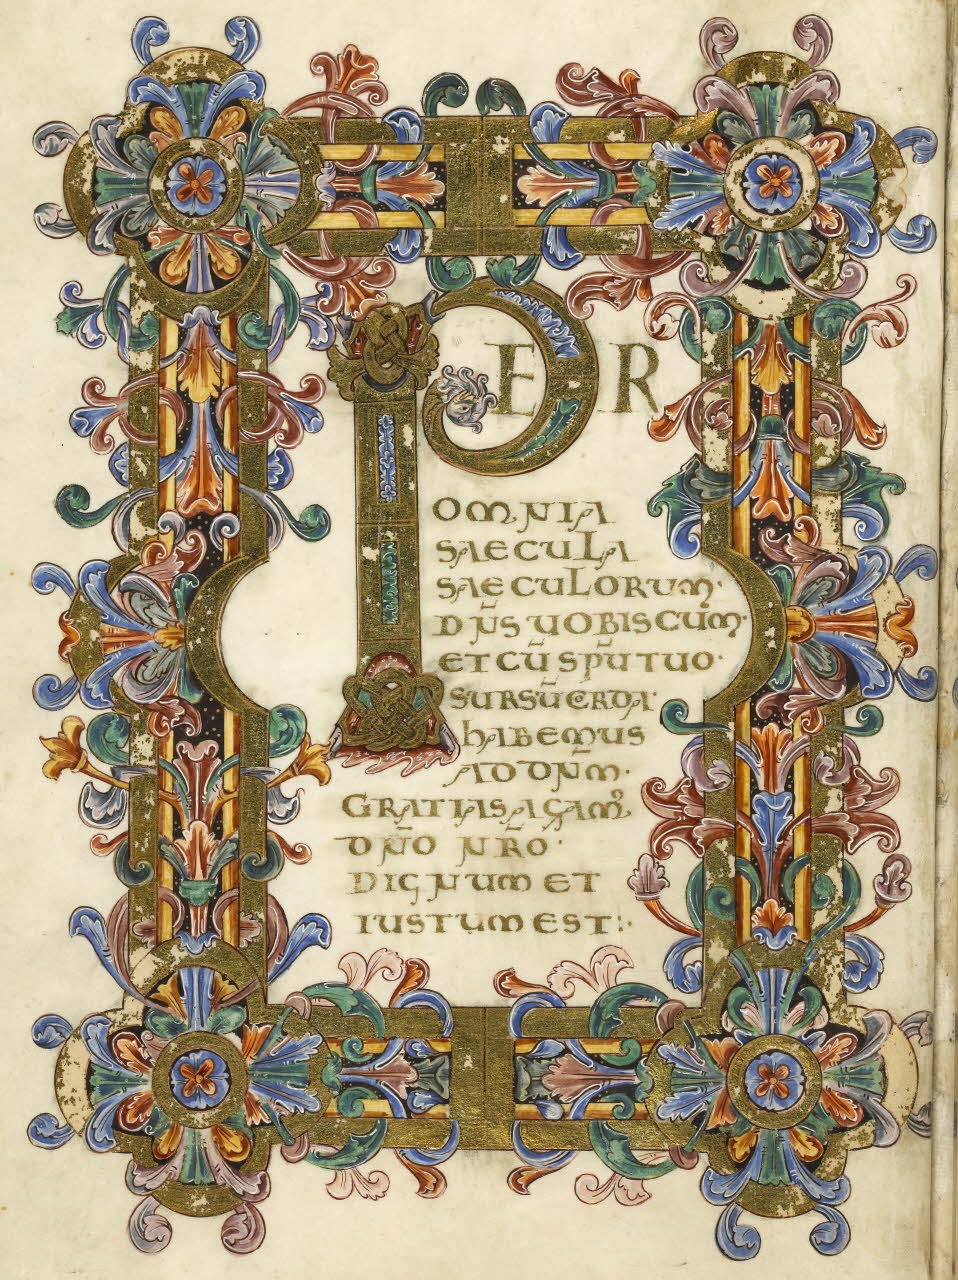 PER
OMNIA
SAECULA
SAECULORUM·
DN̄S UOBISCUM·
ET CŪ SP̄U TUO·
SURSŪ CORDA·
HABEMUS
AD DN̄M·
GRATIAS AGAMꝰ
DN̄O NR̄O·
DIGNUM ET
IUSTUM EST:·